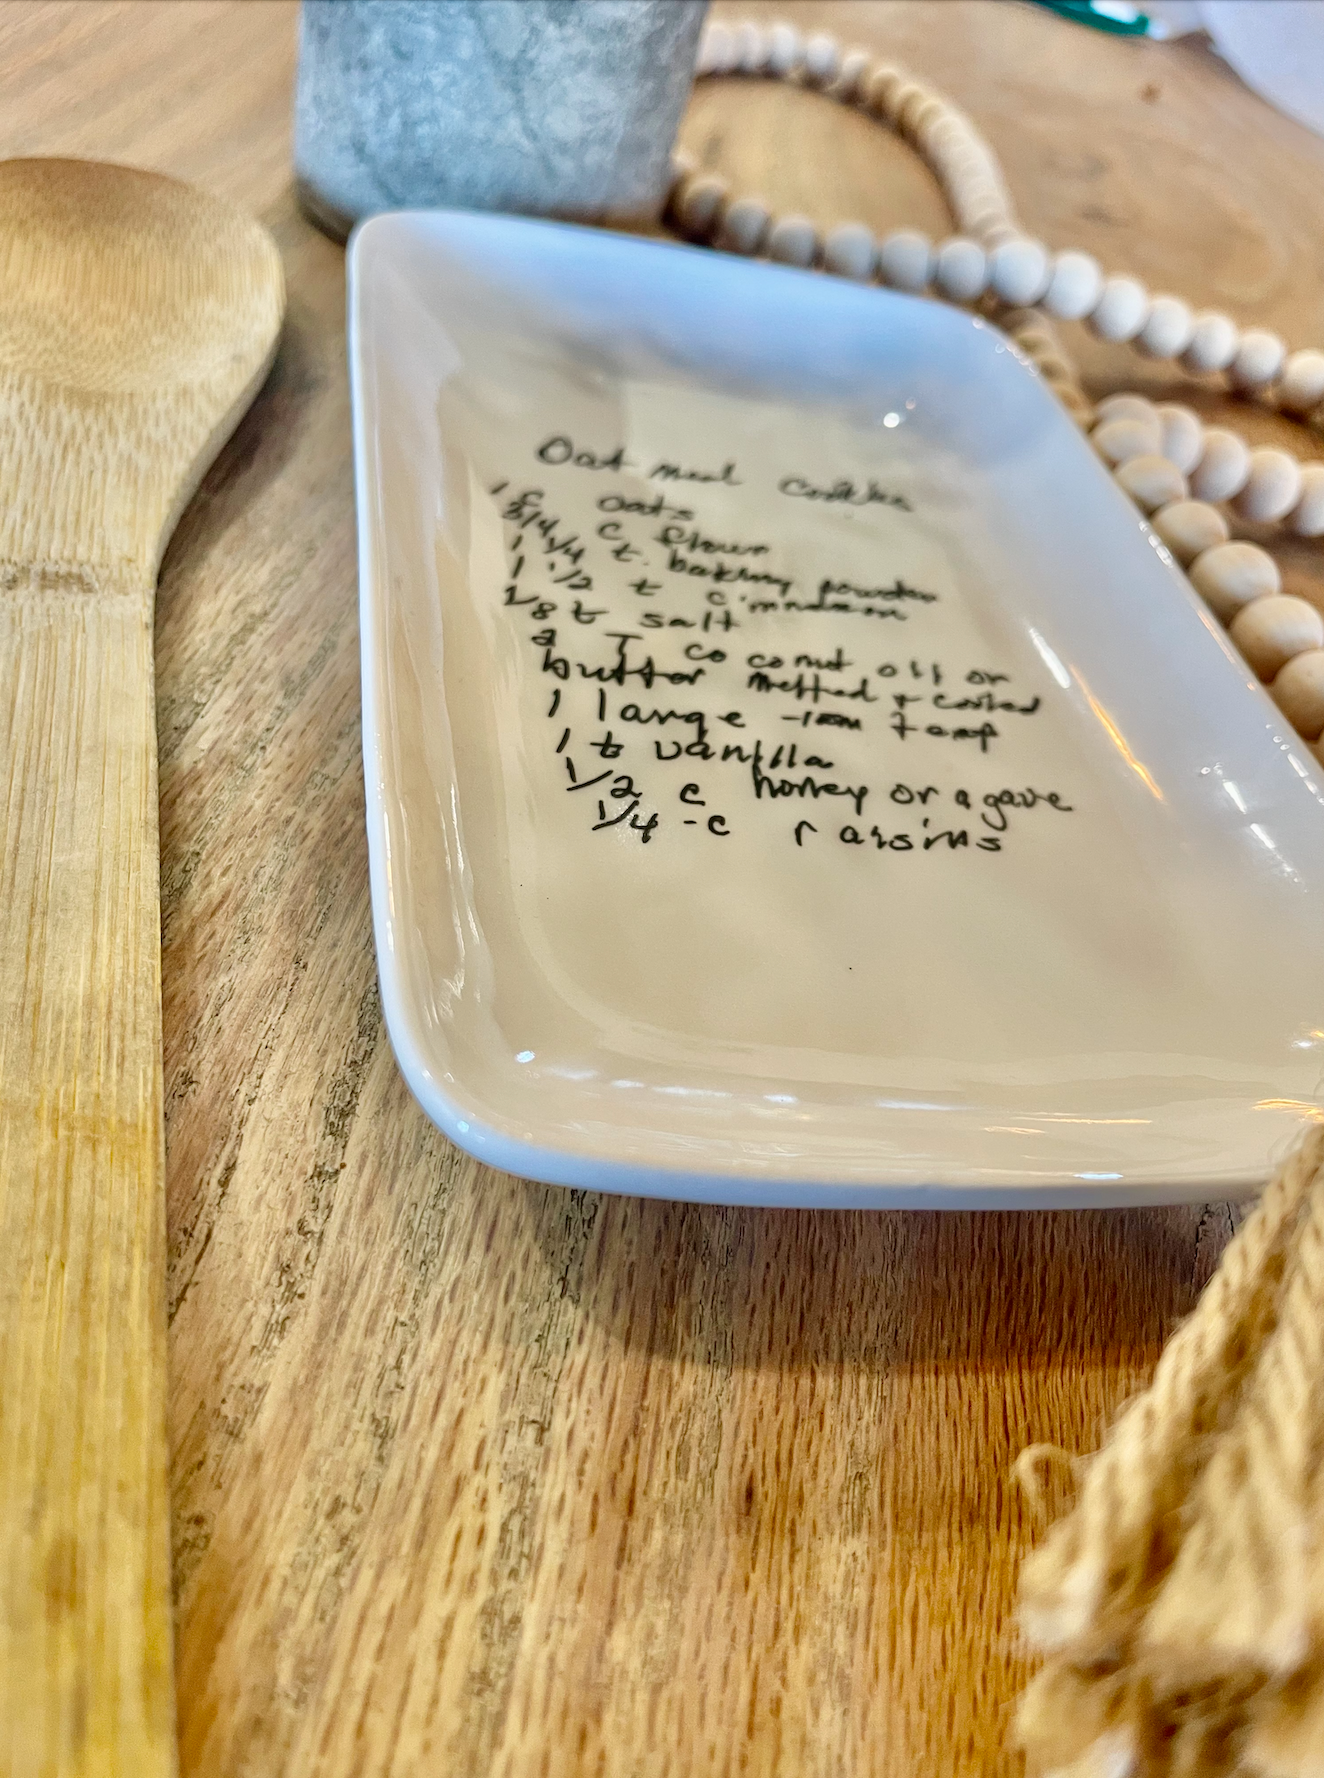 Oat meal Cookies
1 c oats
3/4 c flour
1 1/4 t. baking powder
1 1/2 t cinnamon
1/8 t salt
2 T coconut oil or
butter melted & cooled
1 large - room temp
1 t vanilla
1/2 c honey or agave
1/4 -c raisins